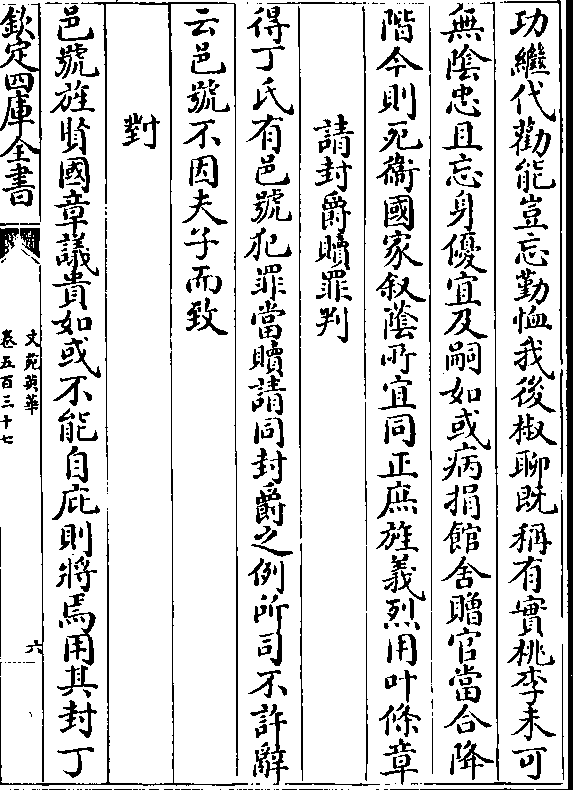 功繼代勸能豈忘勤恤我後椒聊既稱有實桃李未可
無陰忠且忘身優宜及嗣如或病捐館舍贈官當合降
階今則死衞國家叙蔭所宜同正庶旌義烈用叶條章
請封爵贖罪判
得丁氏有邑號犯罪當贖請同封爵之例所司不許辭
云邑號不因夫子而致
對
邑號旌賢國章議貴如或不能自庇則將焉用其封丁
欽定四庫全書
文苑英華
卷五百三十七
六